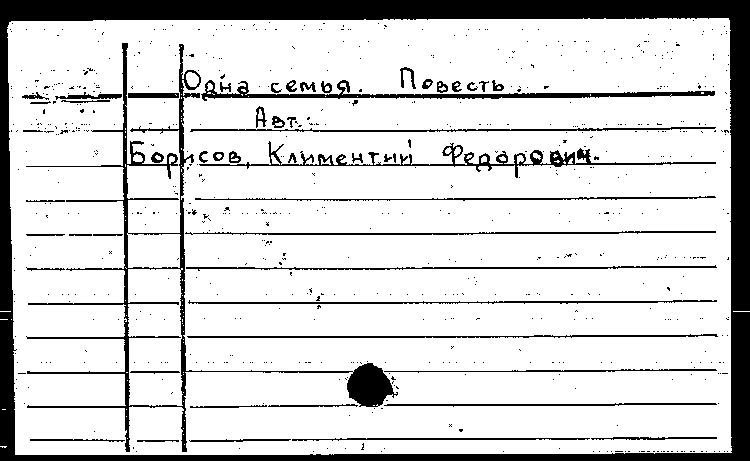 Одна семья. Повесть.
Авт.:
Борисов, Климентий Федорович.